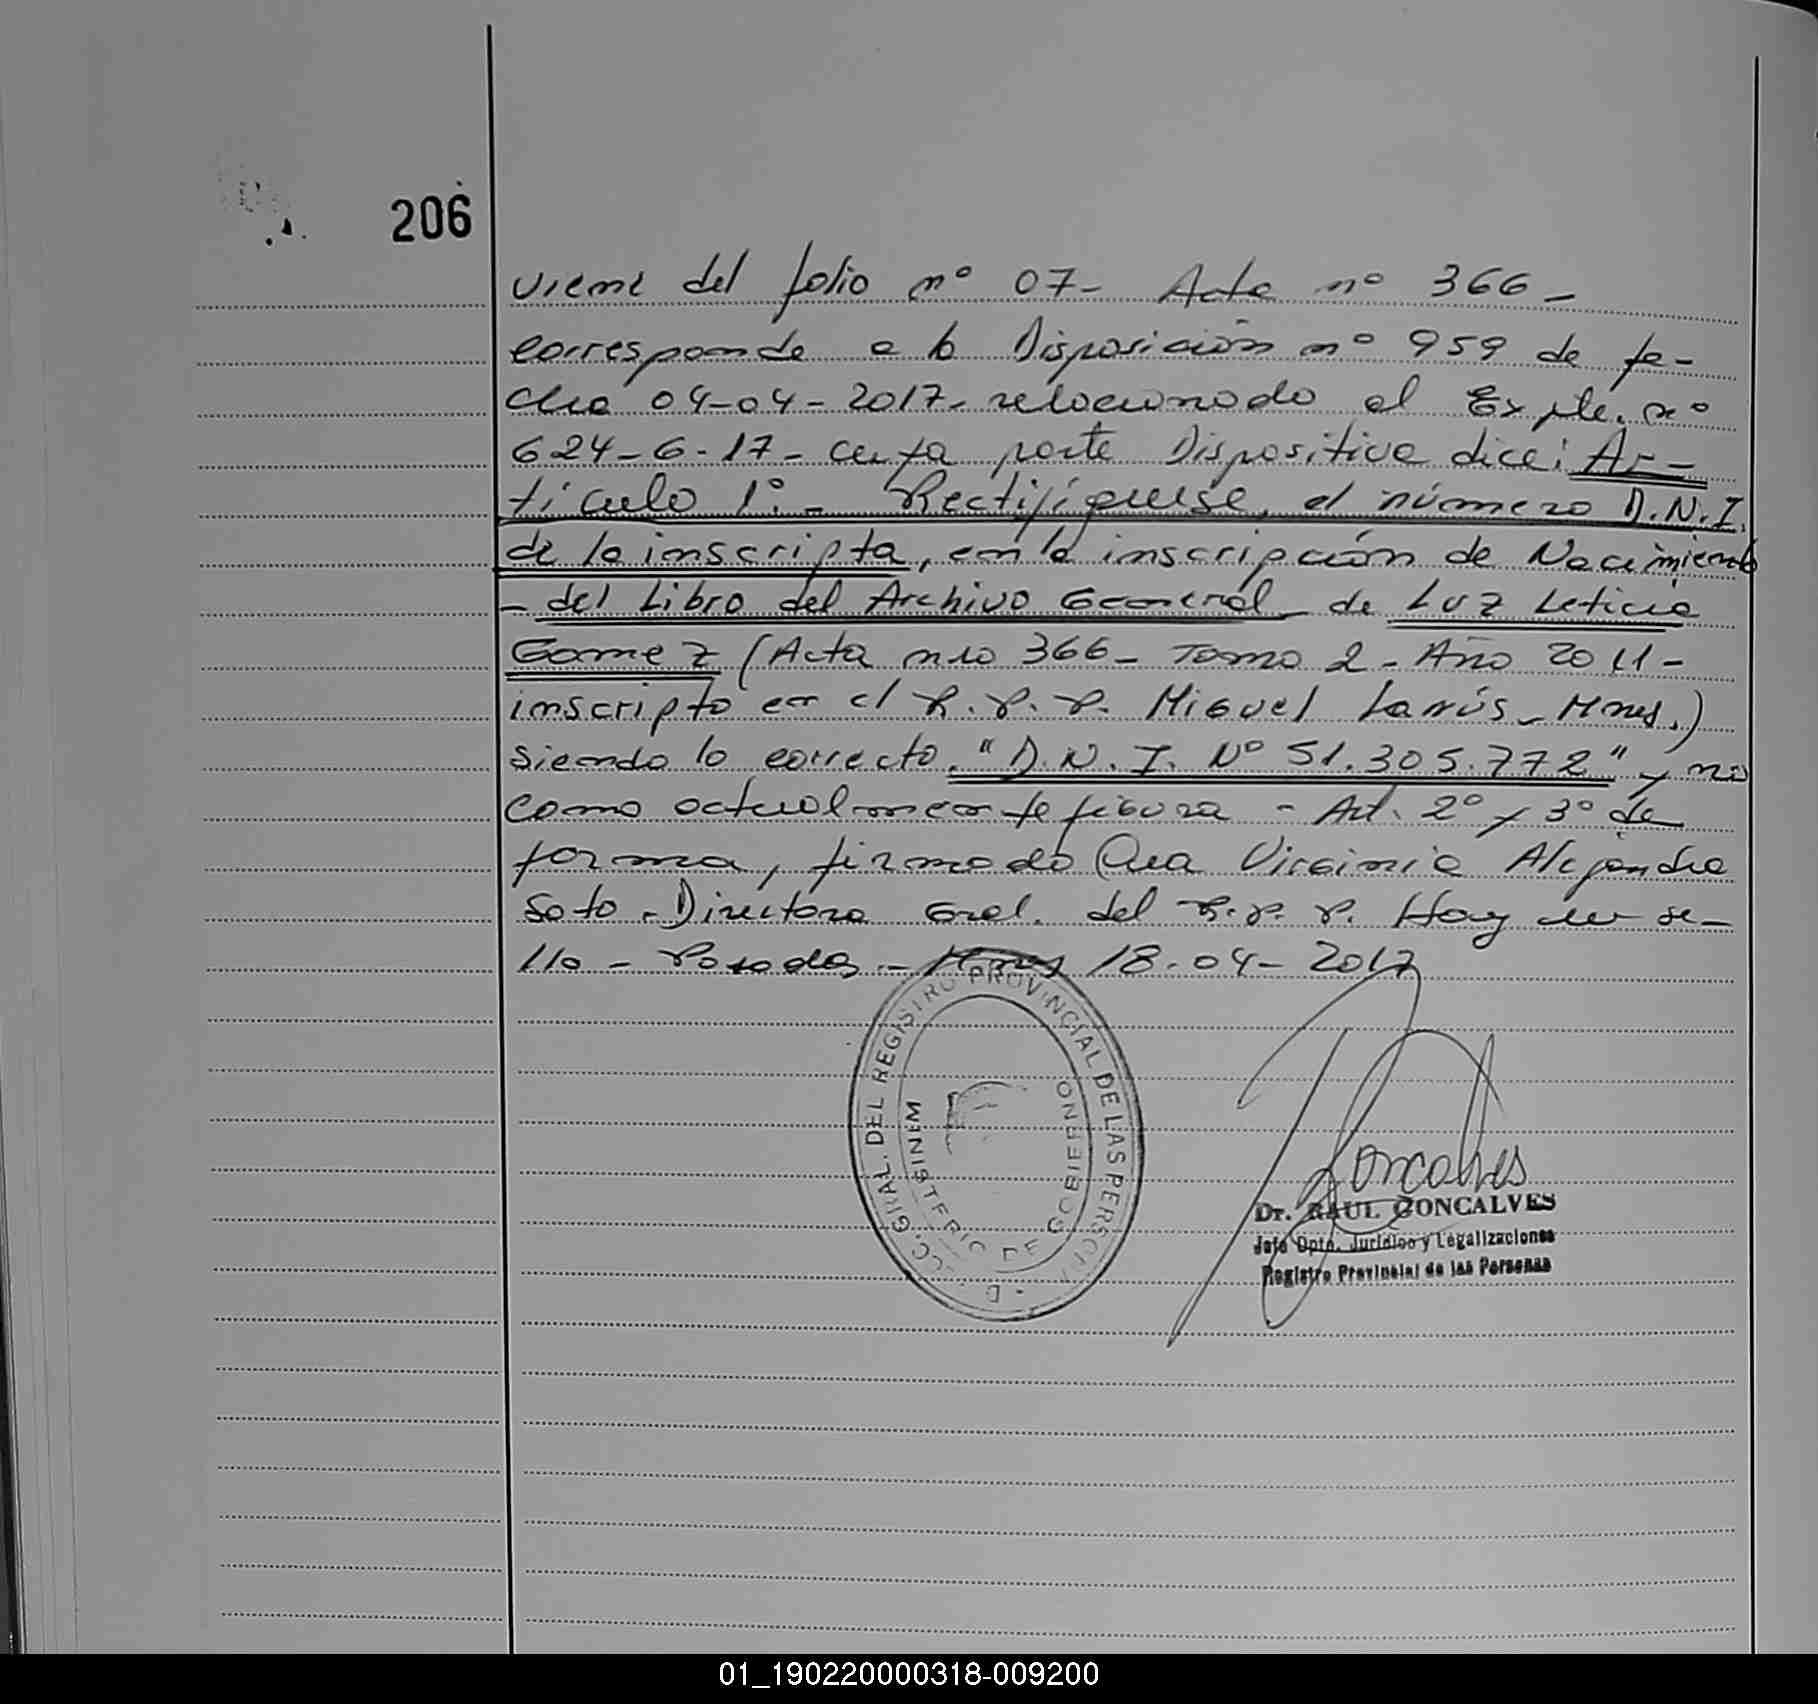 206
viene del folio nº 07- Acta nº 366-
corresponde a la Disposición nº 959 de fe-
cha 04-04-2017- relacionado al Expte. nº
624-G-17- cuya parte Dispositiva dice: Ar-
tículo 1º.- Rectifíquese, el número D.N.I.
de la inscripta, en la inscripción de Nacimiento
- del Libro del Archivo General - de Luz Leticia
Gomez (Acta nro 366- Tomo 2- Año 2011-
inscripto en el R.P.P. Miguel Lanús- Mnes.)
siendo lo correcto. "D.N.I. Nº 51.305.772" y no
como actualmente figura - Art. 2º y 3º de
forma, firmado Cra Virginia Alejandra
Soto - Directora Gral. del R.P.P. Hay un se-
llo - Posadas - Mnes 18-04-2017
GRAL. DEL REGISTRO PROVINCIAL DE LAS PERSONAS
MINISTERIO DE GOBIERNO
Goncalves
Dr. RAUL GONCALVES
Jefe Dpto. Jurídico y Legalizaciones
Registro Provincial de las Personas
01_190220000318-009200